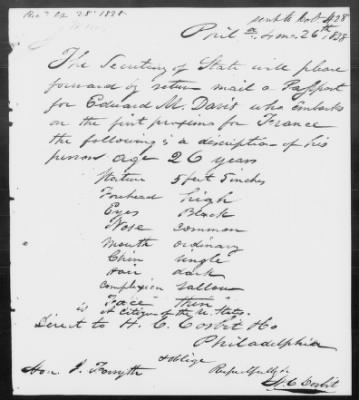 Philª 4 mo 26th 1838
The Secretary of State will please
forward by return mail a Passport
for Edward M. Davis who Embarks
on the first proximo for France
the following is a description of his
person age 26 years
Stature 5 feet 5 inches
Forehead high
Eyes Black
Nose common
mouth ordinary
Chin single
Hair dark
complexion sallow
Face "thin"
is a citizen of the U. States.
Direct to H. C. Corbit
Philadelphia
& oblige
Hon. J. Forsyth Respectfully
H C Corbit